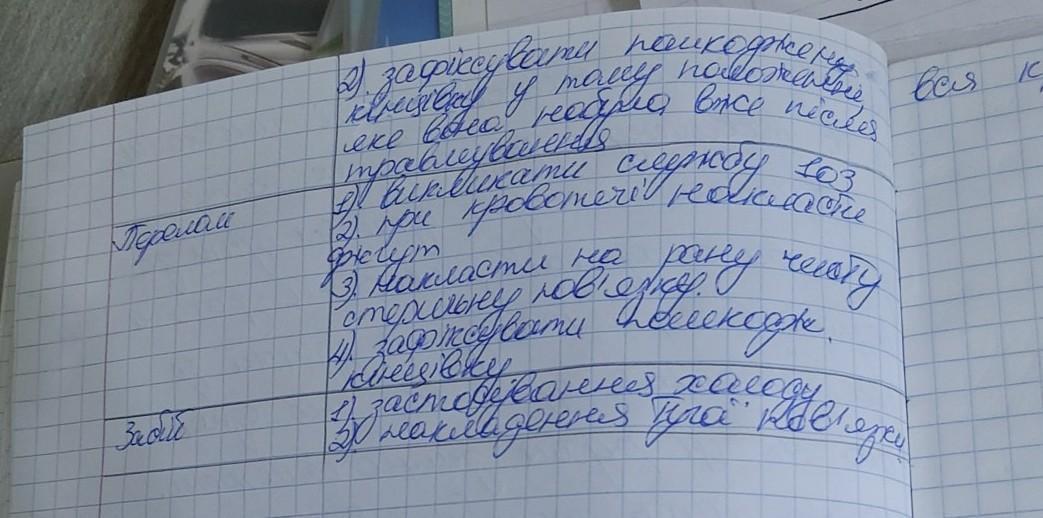 2). зафіксувати пошкоджену
кінцівку у тому положенні,
яке вона набула вже після
травмування
Перелом
1) викликати службу 103
2). при кровотечі накласти
джгут
3). накласти на рану чисту
стерильну пов'язку.
4). зафіксувати пошкодж.
кінцівку
Забій
1). застосування холоду
2). накладення тугої пов'язки
вся